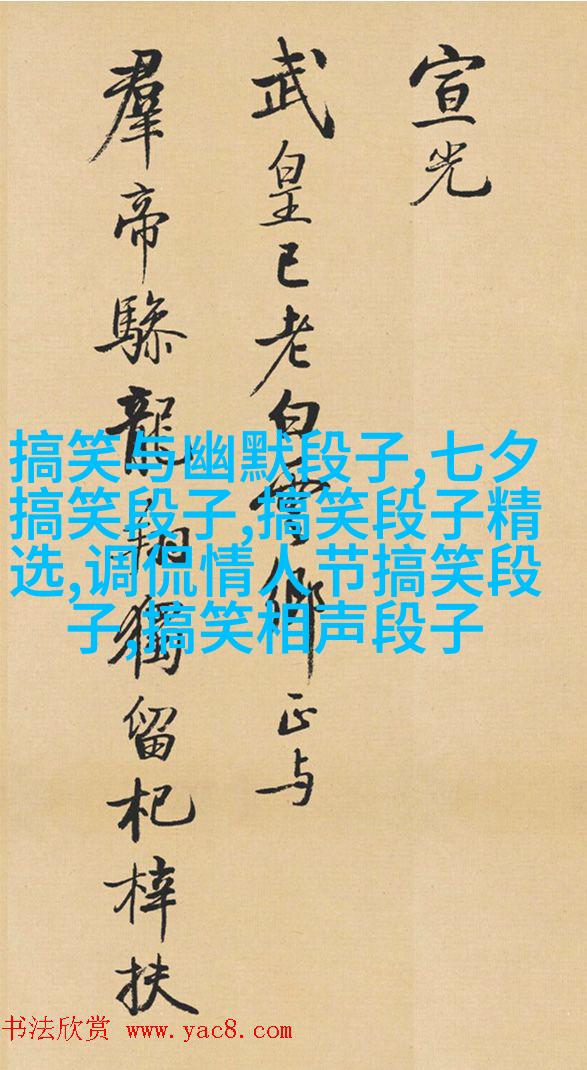 宣光
武皇已老白雲鄉正与
羣帝驂龍翔獨留杞梓扶
搞笑与幽默段子,七夕
搞笑段子,搞笑段子精
选,调侃情人节搞笑段
子,搞笑相声段子
书法欣赏 www.yac8.com